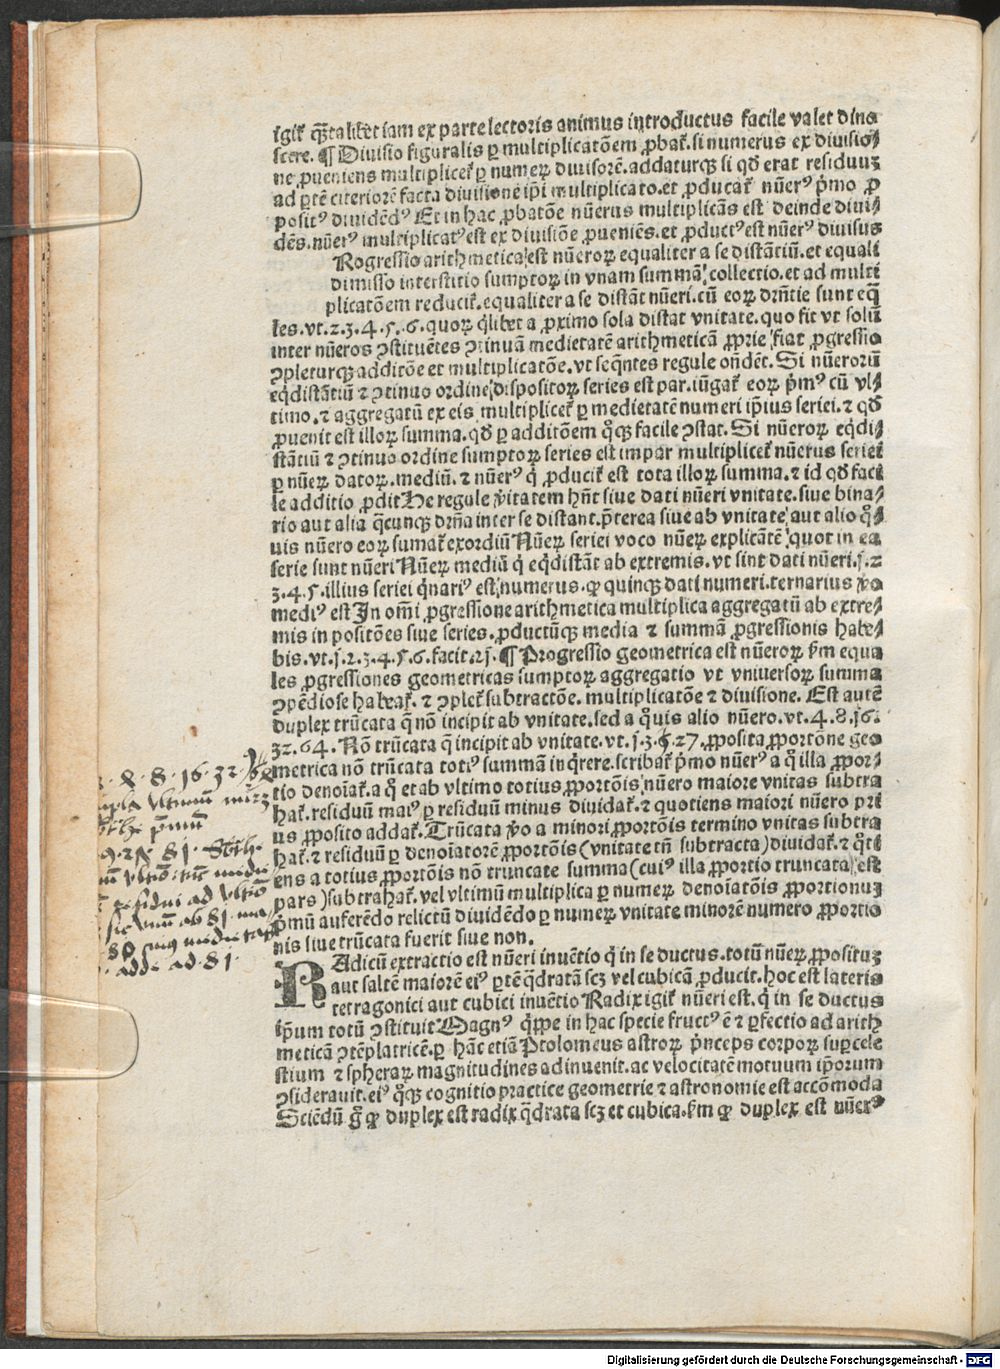 igit᷒ q̄ntalibet iam ex parte lectoris animus introductus facile valet dino
scere. ¶ Diuisio figuralis ꝑ multiplicatōem ꝓbat᷒. si numerus ex diuisio⸗
ne ꝓueniens multiplicet᷒ ꝑ numeꝝ diuisorē. addaturqꝫ si qd̄ erat residuuꝫ
ad ꝑtē citeriorē facta diuisione ip̄i multiplicato. et ꝓducat᷒ nūerꝰ p̄mo ꝓ
positꝰ diuidēdꝰ Et in hac ꝓbatōe nūerus multiplicās est deinde diui⸗
dēs. nūerꝰ multiplicatꝰ est ex diuisiōe ꝓueniēs. et ꝓductꝰ est nūerꝰ diuisus
Rogressio arithmetica est nūeroꝝ equaliter a se distātiū. et equali
dimisso interstitio sumptoꝝ in vnam summā collectio. et ad multi
plicatōem reducit᷒. equaliter a se distāt nūeri. cū eoꝝ dr̄ntie sunt eq̄
les. vt. 2. 3. 4. 5. 6. quoꝝ q̇libet a ꝓximo sola distat vnitate. quo fit vt solū
inter nūeros ꝯstituētes ꝯtinuā medietatē arithmeticā ꝓprie fiat ꝓgressio
ꝯpleturqꝫ additōe et multiplicatōe. vt seq̄ntes regule on̄dēt. Si nūerorū
eq̇distātiū ⁊ ꝯtinuo ordine dispositoꝝ series est par. iūgat᷒ eoꝝ p̄mꝰ cū vl⸗
timo. ⁊ aggregatū ex eis multiplicet᷒ ꝑ medietatē numeri ip̄ius seriei. ⁊ qd̄
ꝓuenit est illoꝝ summa. qd̄ ꝑ additōem q̊qꝫ facile ꝯstat. Si nūeroꝝ eq̇di⸗
stātiū ⁊ ꝯtinuo ordine sumptoꝝ series est impar multiplicet᷒ nūerus seriei
ꝑ nūeꝝ datoꝝ. mediū. ⁊ nūerꝰ q̇ ꝓducit᷒ est tota illoꝝ summa. ⁊ id qd̄ faci
le additio ꝓdit He regule v̓itatem hn̄t siue dati nūeri vnitate. siue bina⸗
rio aut alia q̄cunqꝫ dr̄na inter se distant. p̄terea siue ab vnitate aut alio q̊⸗
uis nūero eoꝝ sumat᷒ exordiū Nūeꝝ seriei voco nūeꝝ explicātē quot in ea
serie sunt nūeri Nūeꝝ mediū q̇ eq̇distāt ab extremis. vt sint dati nūeri. 1. 2
3. 4. 5. illius seriei q̇nariꝰ est numerus. qꝫ quinqꝫ dati numeri. ternarius v̓o
mediꝰ est In om̄i ꝓgressione arithmetica multiplica aggregatū ab extre⸗
mis in positōes siue series. ꝓductūqꝫ media ⁊ summā ꝓgressionis habe⸗
bis. vt. 1. 2. 3. 4. 5. 6. facit. 21. ¶ Progressio geometrica est nūeroꝝ s̄m equa
les ꝓgressiones geometricas sumptoꝝ aggregatio vt vniuersoꝝ summa
ꝯpēdiose habeat᷒. ⁊ ꝯplet᷒ subtractōe. multiplicatōe ⁊ diuisione. Est autē
duplex trūcata q̄ nō incipit ab vnitate. sed a q̊uis alio nūero. vt. 4. 8. 16.
32. 64. Nō trūcata q̄ incipit ab vnitate. vt. 1. 3. 9. 27. ꝓposita ꝓportōne geo
metrica nō trūcata totiꝰ summā inq̇rere. scribat᷒ p̄mo nūerꝰ a q̊ illa ꝓpor⸗
tio denoīat᷒. a q̊ et ab vltimo totius ꝓportōis nūero maiore vnitas subtra
hat᷒. residuū maiꝰ ꝑ residuū minus diuidat᷒. ⁊ quotiens maiori nūero pri
us ꝓposito addat᷒. Trūcata v̓o a minori ꝓportōis termino vnitas subtra
hat᷒. ⁊ residuū ꝑ denoīatorē ꝓportōis (vnitate tn̄ subtracta) diuidat᷒. ⁊ q̊ti
ens a totius ꝓportōis nō truncate summa (cuiꝰ illa ꝓportio truncata est
pars) subtrahat᷒. vel vltimū multiplica ꝑ numeꝝ denoīatōis ꝓportionuꝫ
p̄mū auferēdo relictū diuidēdo ꝑ numeꝝ vnitate minorē numero ꝓportio
nis siue trūcata fuerit siue non.
RAdicū extractio est nūeri inuētio q̇ in se ductus. totū nūeꝝ ꝓposituꝫ
aut saltē maiorē eiꝰ ꝑtē q̄dratā scꝫ vel cubicā ꝓducit. hoc est lateris
tetragonici aut cubici inuētio Radix igit᷒ nūeri est. q̇ in se ductus
ip̄um totū ꝯstituit Magnꝰ q̇ppe in hac specie fructꝰ ē ⁊ ꝑfectio ad arith
meticā ꝯtēplatricē. ꝑ hāc etiā Ptolomeus astroꝝ p̄nceps corpoꝝ suꝑcele
stium ⁊ spheraꝝ magnitudines adinuenit. ac velocitatē motuum ip̄orum
ꝯsiderauit. eiꝰ q̊qꝫ cognitio practice geometrie ⁊ astronomie est accōmoda
Sciēdū g̊ qꝫ duplex est radix q̄drata scꝫ et cubica. s̄m qꝫ duplex est nūerꝰ
8 · 16 · 32
81 ·
ad vltiō
ab 81 ·
80
adde ad · 81 ·
Digitalisierung gefördert durch die Deutsche Forschungsgemeinschaft - DFG